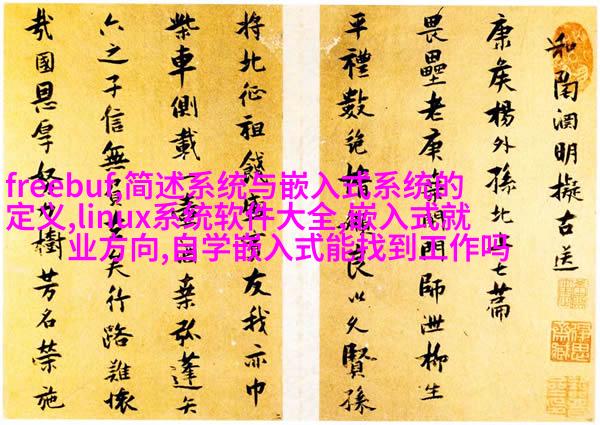 freebuf,简述系统与嵌入式系统的
定义,linux系统软件大全,嵌入式就
业方向,自学嵌入式能找到工作吗
明擬古送
康侯楊外孫北七篇
畏壘老庚門師泄柳生
平禮數絕良以久賢孫
將北征祖餞友我亦巾
柴車側載一桒弧蓬矢
六之子信無負矣行路難懷
我國恩厚努力樹芳名榮施